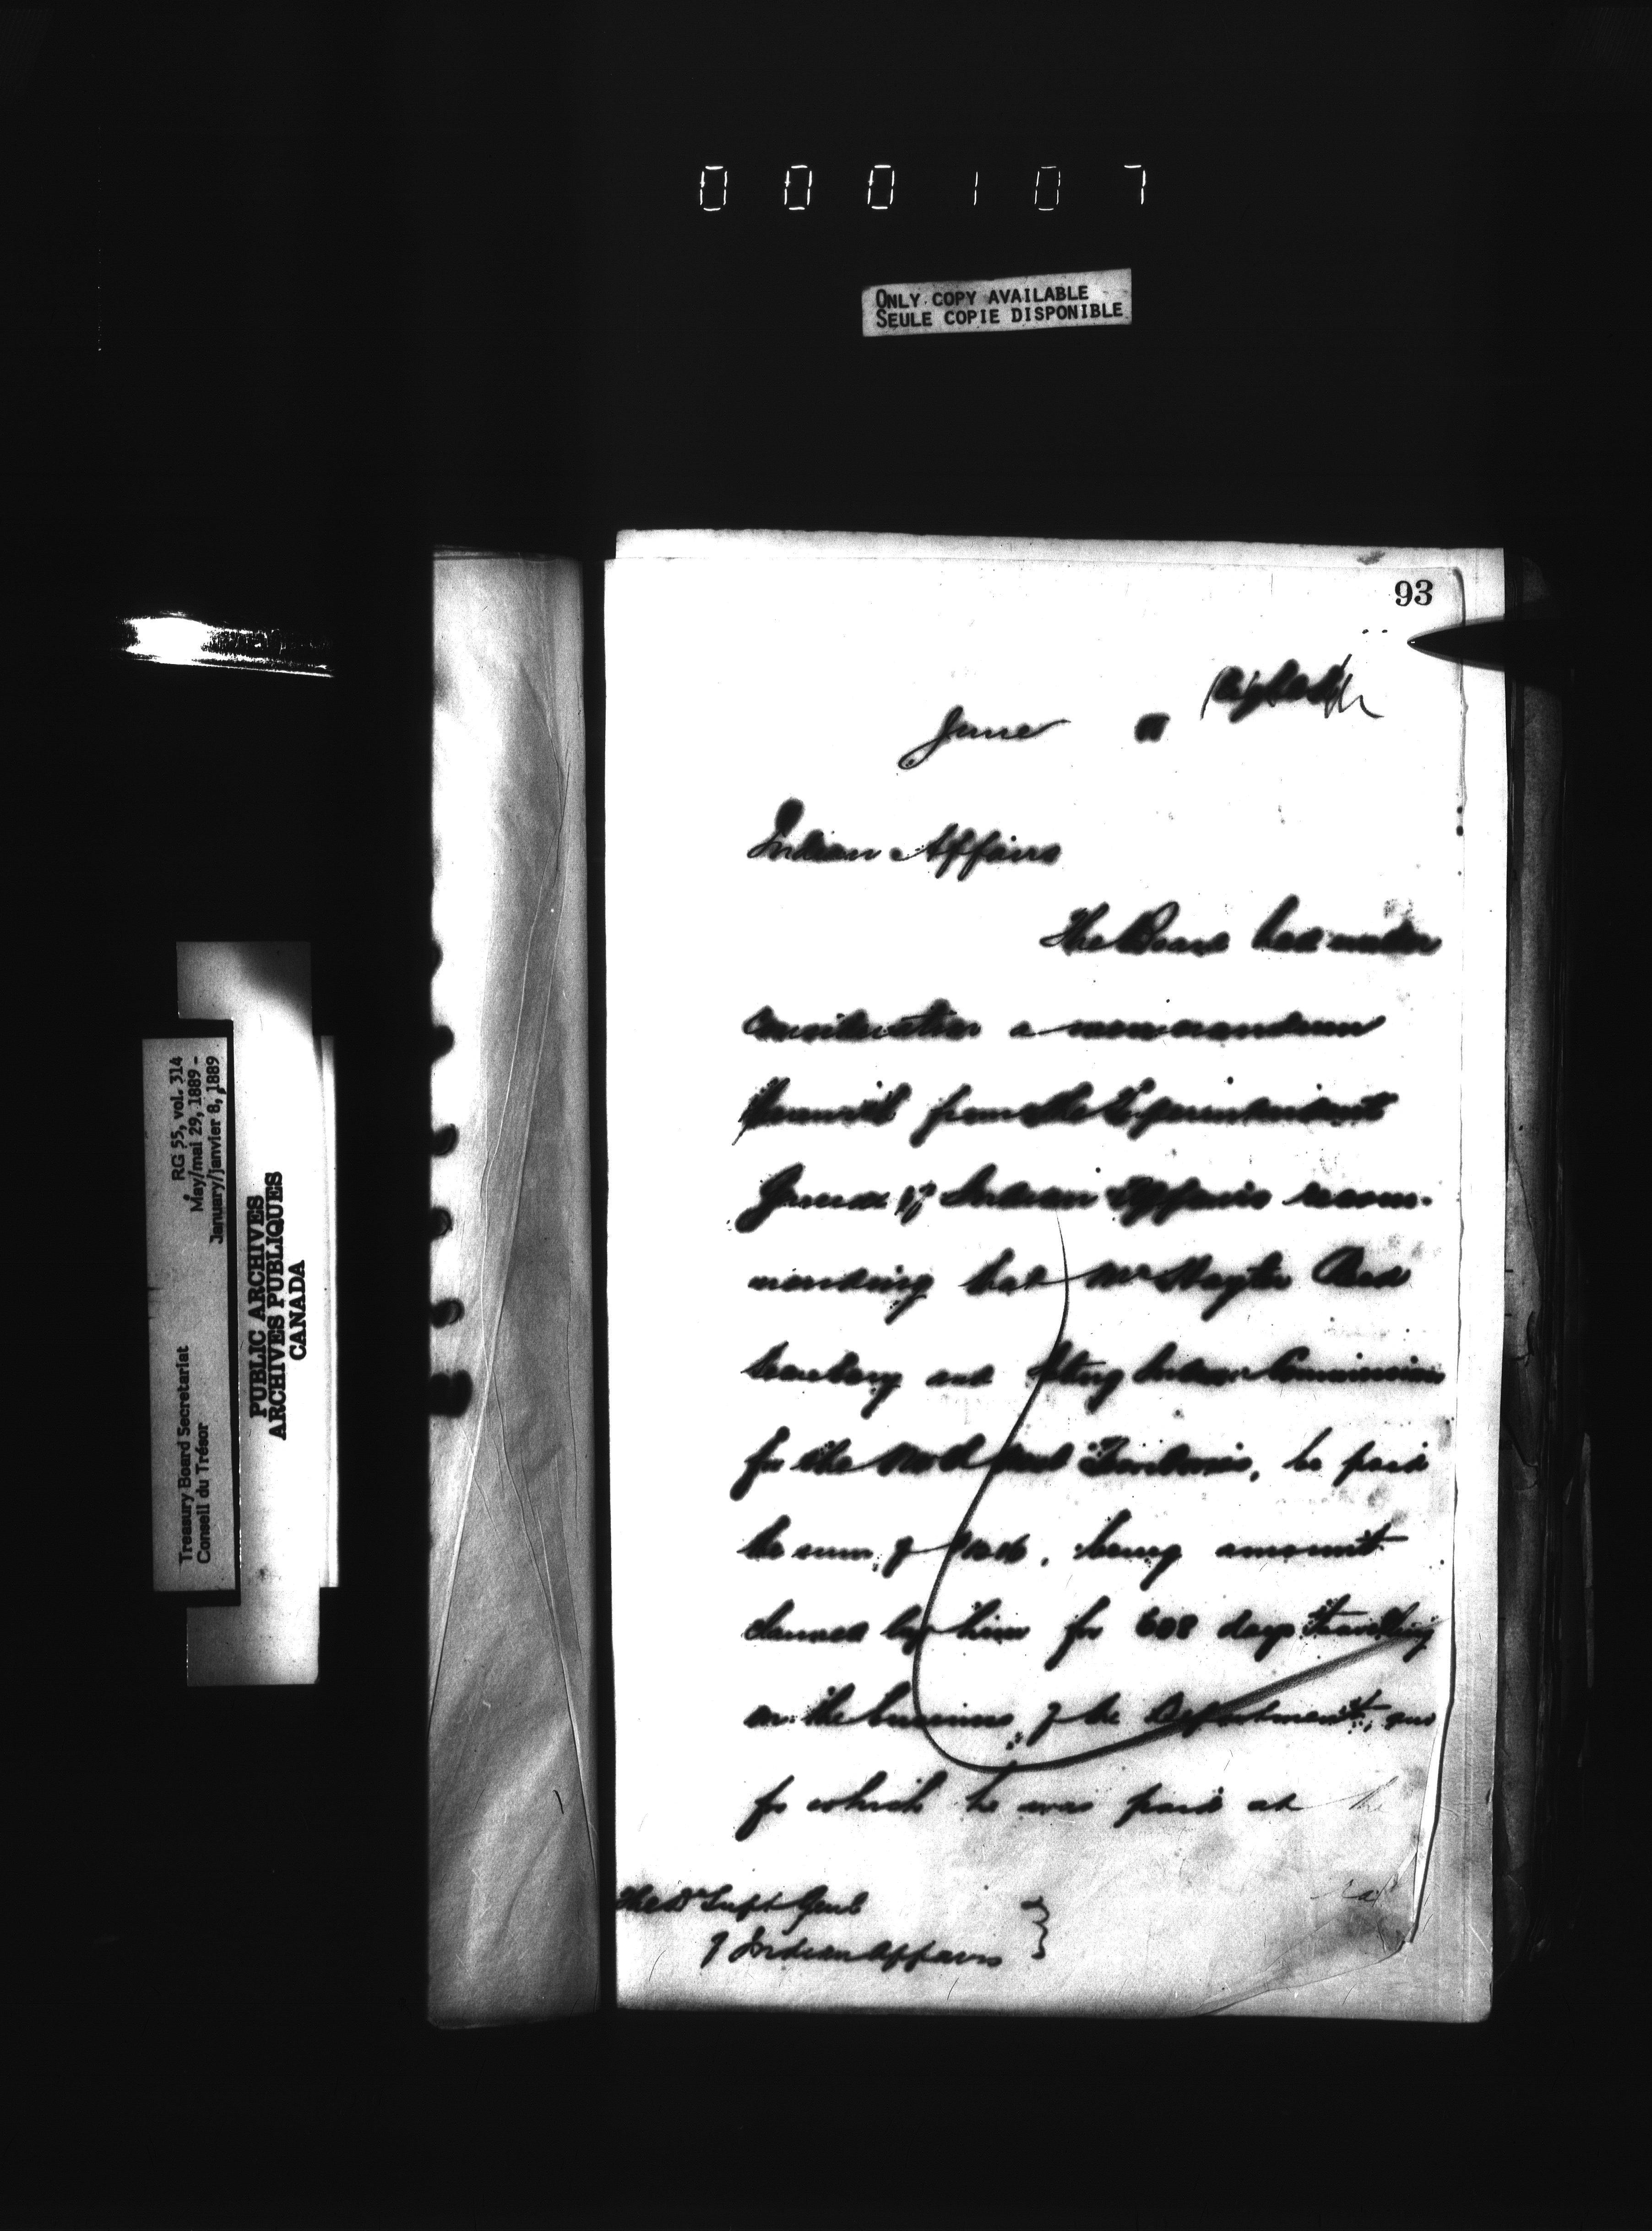 000107
ONLY COPY AVAILABLE
SEULE COPIE DISPONIBLE
93
June
Indian Affairs
The Board had under
consideration a memorandum
herewith from the Superintendent
General of Indian Affairs recom-
mending that Mr Hayter Reed
Secretary and Acting Indian Commissioner
for the North West Territories, be paid
the sum of
being amount
claimed by him for 608 days travelling
on the business of the Department, and
for which he was paid at the
The D. Supt Genl
of Indian Affairs
Treasury Board Secretariat
Conseil du Trésor
RG 55, vol. 314
May/mai 29, 1889 -
January/janvier 8, 1889
PUBLIC ARCHIVES
ARCHIVES PUBLIQUES
CANADA